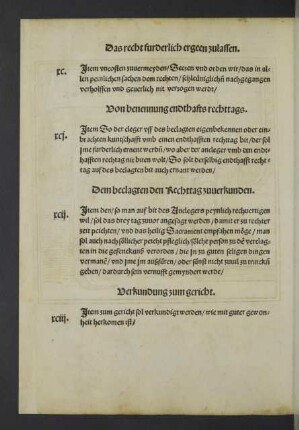 Das recht furderlich ergeen zulassen.
xc. Item vncosten zuuermeyden/ Setzen vnd orden wir/ das in al-
len peinlichen sachen dem rechten/ schleüniglichñ nachgegangen
verholffen vnd geuerlich nit verzogen werde/
Von benennung endthafts rechttags.
xcj. Item So der cleger vff des beclagten eigenbekennen oder ein-
brachten kuntschafft vmb einen endthafften rechtag bit/ der sol
jme furderlich ernent werdñ/ wo aber der ancleger vmb den endt-
hafften rechtag nit biten wolt/ So solt derselbig endthafft recht-
tag auf des beclagten bit auch ernant werden/
Dem beclagten den Rechttag zuuerkunden.
xcij. Item den/ so man auf bit des Anclegers peynlich rechuertigen
wil/ sol das drey tag zuuor angesagt werden/ damit er zu rechter
zeit peichten/ vnd das heilig Sacrament empfahen möge/ man
sol auch nach söllicher peicht pfleglich söliche person zu dē verclag-
ten in die gefencknuß verorden/ die jn zu guten seligen dingen
vermane/ vnd jme jm außfüren/ oder sünst nicht zuuil zu trincken
geben/ dardurch sein vernufft gemyndert werde/
Verkundung zum gericht.
xciij. Item zum gericht sol verkundigt werden/ wie mit guter gewon-
heit herkomen ist/